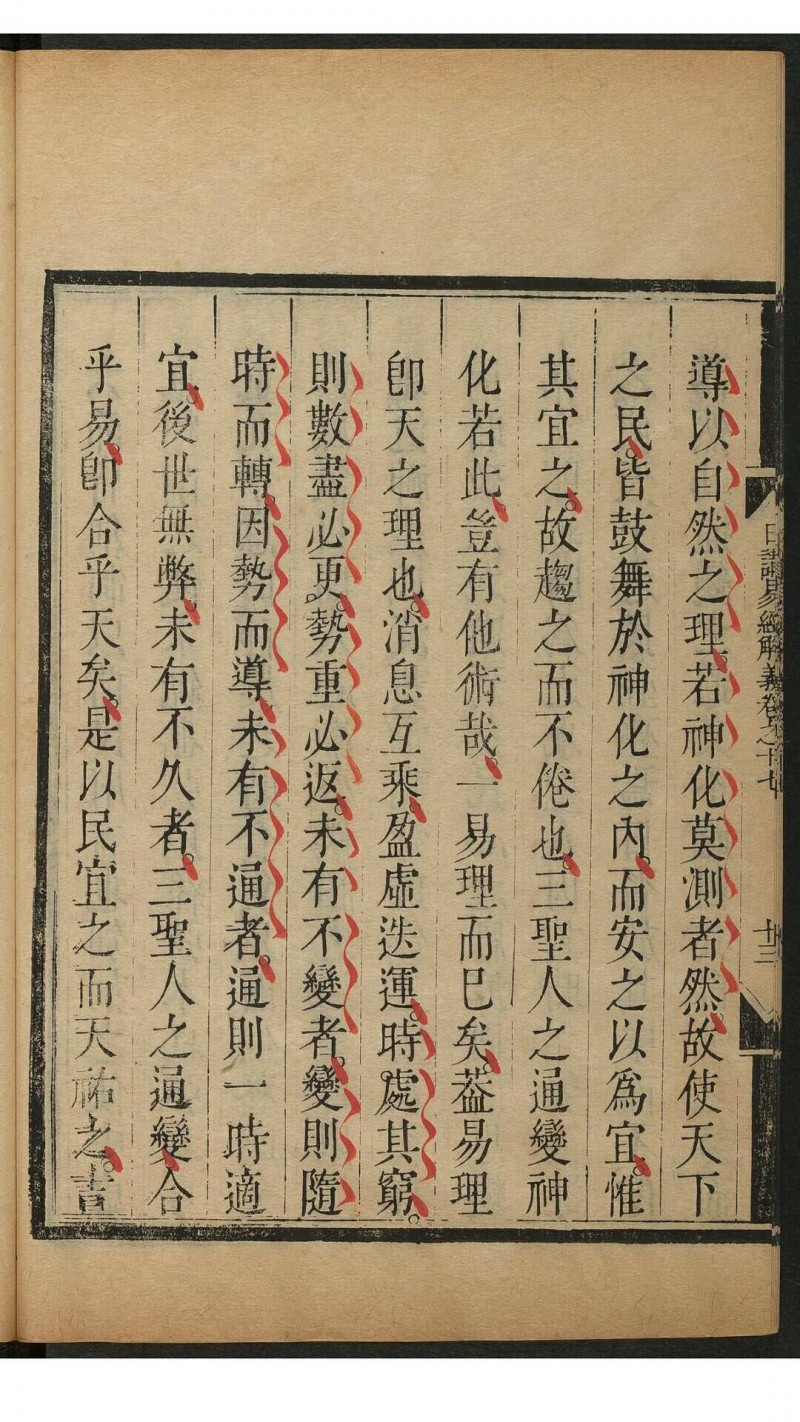 日講易經解義卷之十七
十三
導以自然之理若神化莫測者然故使天下
之民皆鼓舞於神化之內而安之以爲宜惟
其宜之故趨之而不倦也三聖人之通變神
化若此豈有他術哉一易理而已矣葢易理
卽天之理也消息互乘盈虛迭運時處其窮
則數盡必更勢重必返未有不變者變則隨
時而轉因勢而導未有不通者通則一時適
宜後世無弊未有不久者三聖人之通變合
乎易卽合乎天矣是以民宜之而天祐之吉